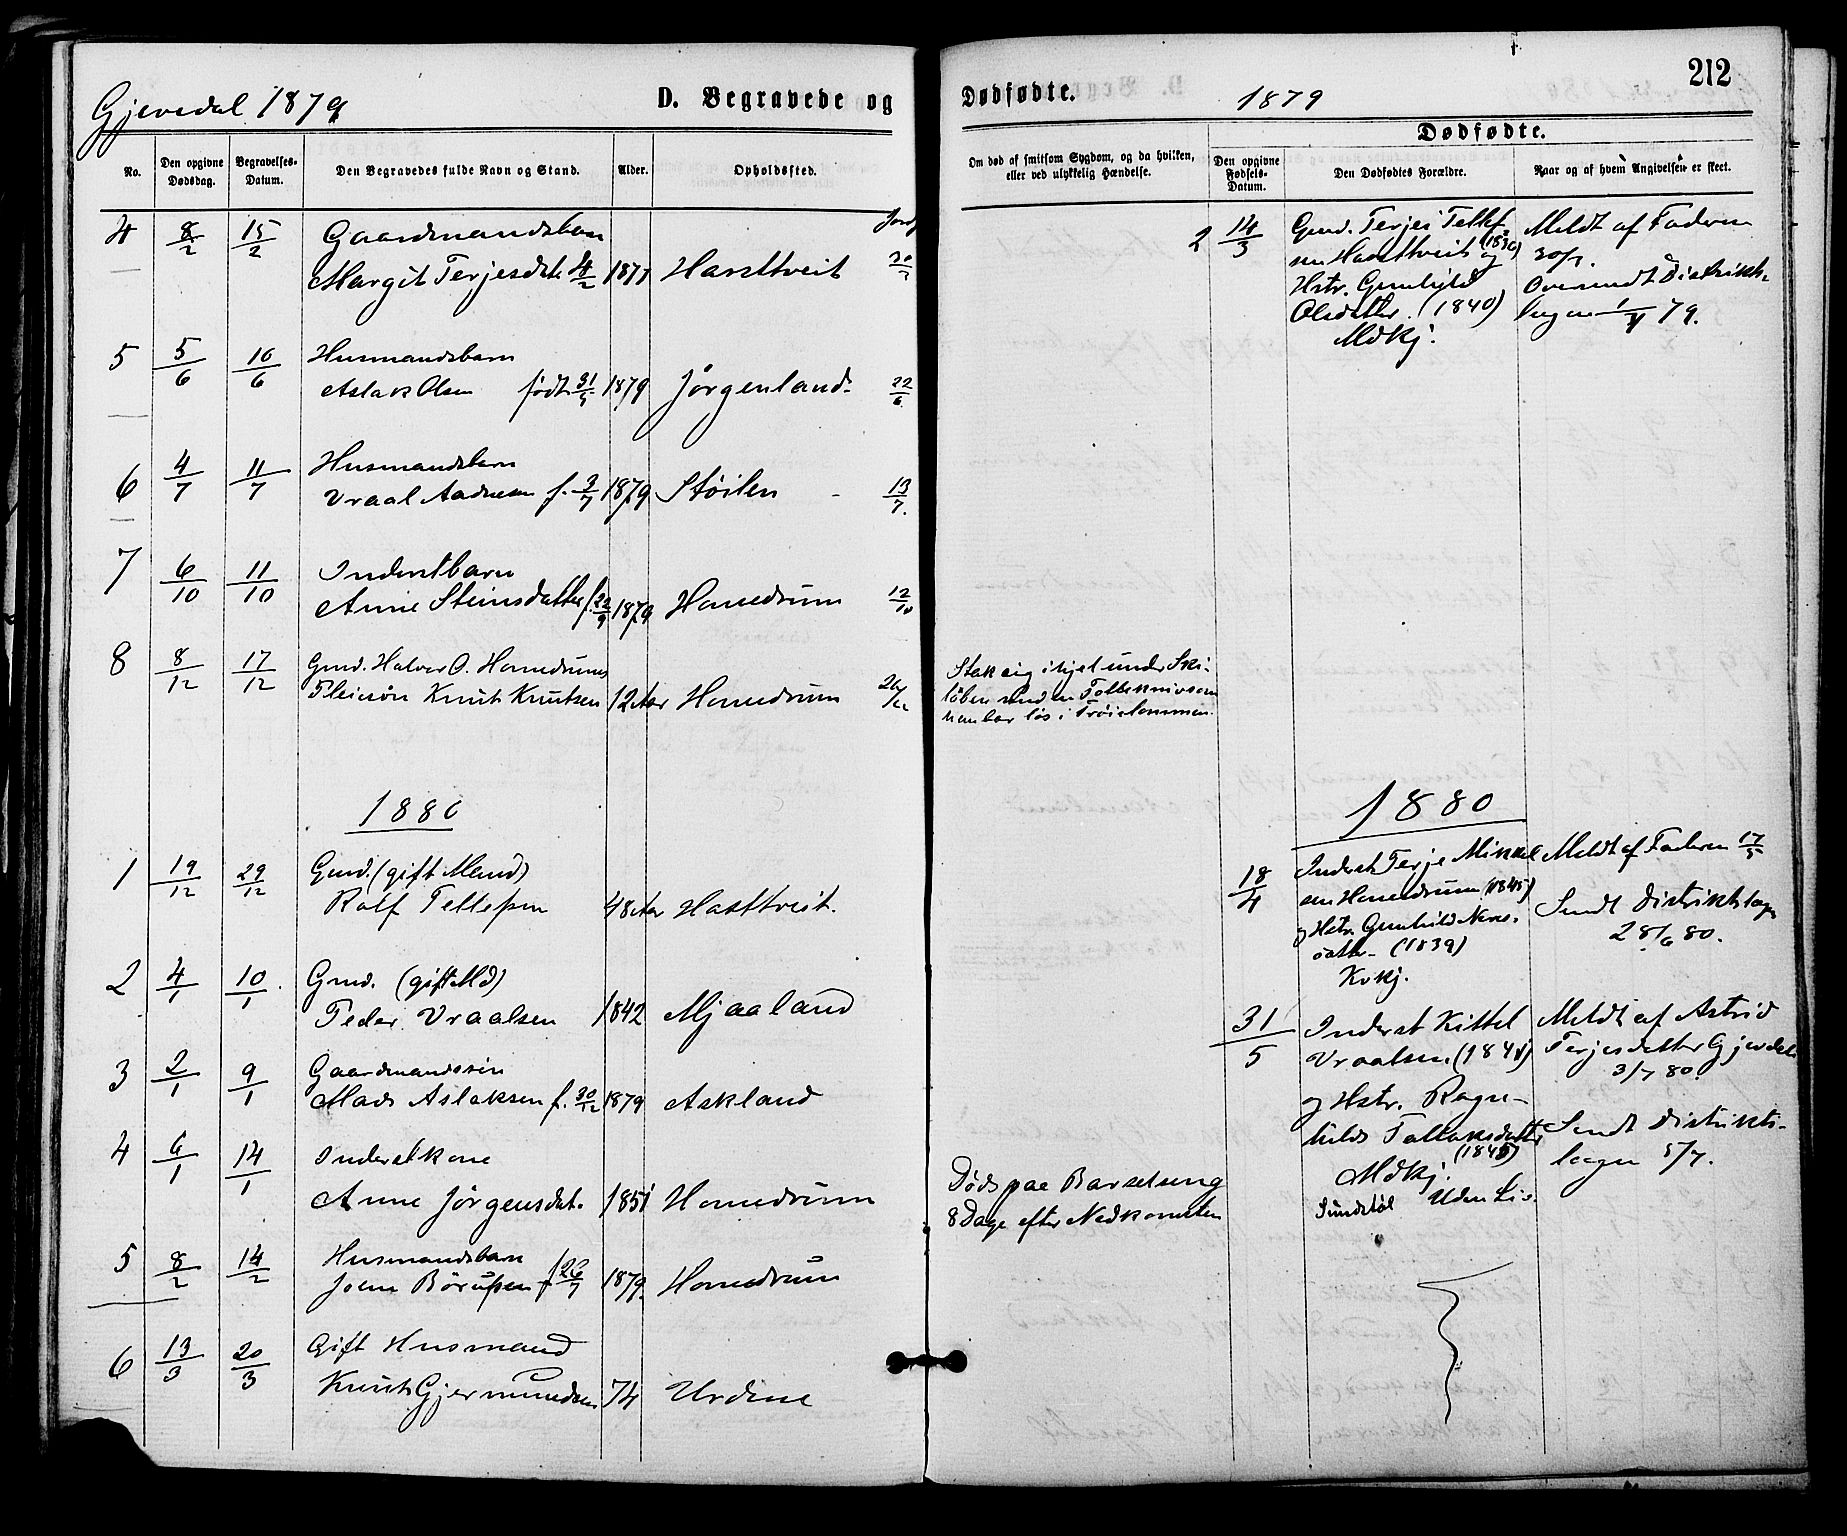 Gjevedal 1879
D. Begravede og
No.
Den opgivne Dødsdag.
Begravelses-Datum.
Den Begravedes fulde Navn og Stand.
Alder.
Opholdssted.
4 8/2 15/2 Gaardmandsbarn
Margit Terjesdtr 4/2 1877 Hasttveit
5 5/6 10/6 Husmandsbarn
Aslak Olsen født 31/5 1879 Jørgenland 22/6
6 4/7 11/7 Husmandsbarn
Vraal Aadnesen f. 3/7 1879 Støilen 13/7.
7 6/10 11/10 Inderstbarn
Anne Steinsdatter f. 22/9 1879 Homdrum 12/10
8 8/12 17/12 Gmd. Halvor O. Homdrums
Pleiesøn Knut Knutsen 12 Aar Homdrum
1880
1 19/12 29/12 Gmd. (gift Mand)
Rolf Tellefsen 48 Aar Hasttveit.
2 4/1 10/1 Gmd. (gift Md)
Peder Vraalsen 1842 Mjaaland
3 2/1 9/1 Gaardmandssøn
Mads Aslaksen f. 30/12 1879 Askland
4 6/1 14/1 Inderstkone
Anne Jørgensdat. 1851 Homdrum
5 8/2 14/2 Husmandsbarn
Joen Børufsen f 26/7 1879. Homdrum
6 13/3 20/3 Gift Husmand
Knut Gjermundsen 74 Urdine
212
Dødfødte.
1879
Dødfødte.
Om død af smitsom Sygdom, og da hvilken,
eller ved ulykkelig Hændelse.
Den opgivne Fødsels-Datum.
Den Dødfødtes Forældre.
Naar og af hvem Angivelsen er skeet.
2 14/3 Gmd. Terjei Tellef-
sen Hasttveit (1836) og
Hstr. Gunhild
Olsdatter. (1840)
Mdkj.
Meldt af Faderen
30/3.
Oversendt Distrikts-
lægen 79.
Stak sig ihjel under Ski-
løben med en Tollekniv som
han bar løs i Trøielommen.
1880
18/4 Inderst Terje Mikkel
sen Homdrum (1845)
og Hstr. Gunhild Næs-
datter (1839)
Kvkj.
Meldt af Faderen 17/5
Sendt Distriktslægen
28/6 80.
31/5 Inderst Kittel
Vraalsen (1841)
og Hstr. Ragn-
hild Tallaksdatter
(1845)
Mdkj.
Sundstøl Uden Liv.
Meldt af Astrid
Terjesdatter Gjevdal
3/7 80.
Sendt Distrikts-
lægen 5/7.
Død paa Barselseng
8 Dage efter Nedkomsten